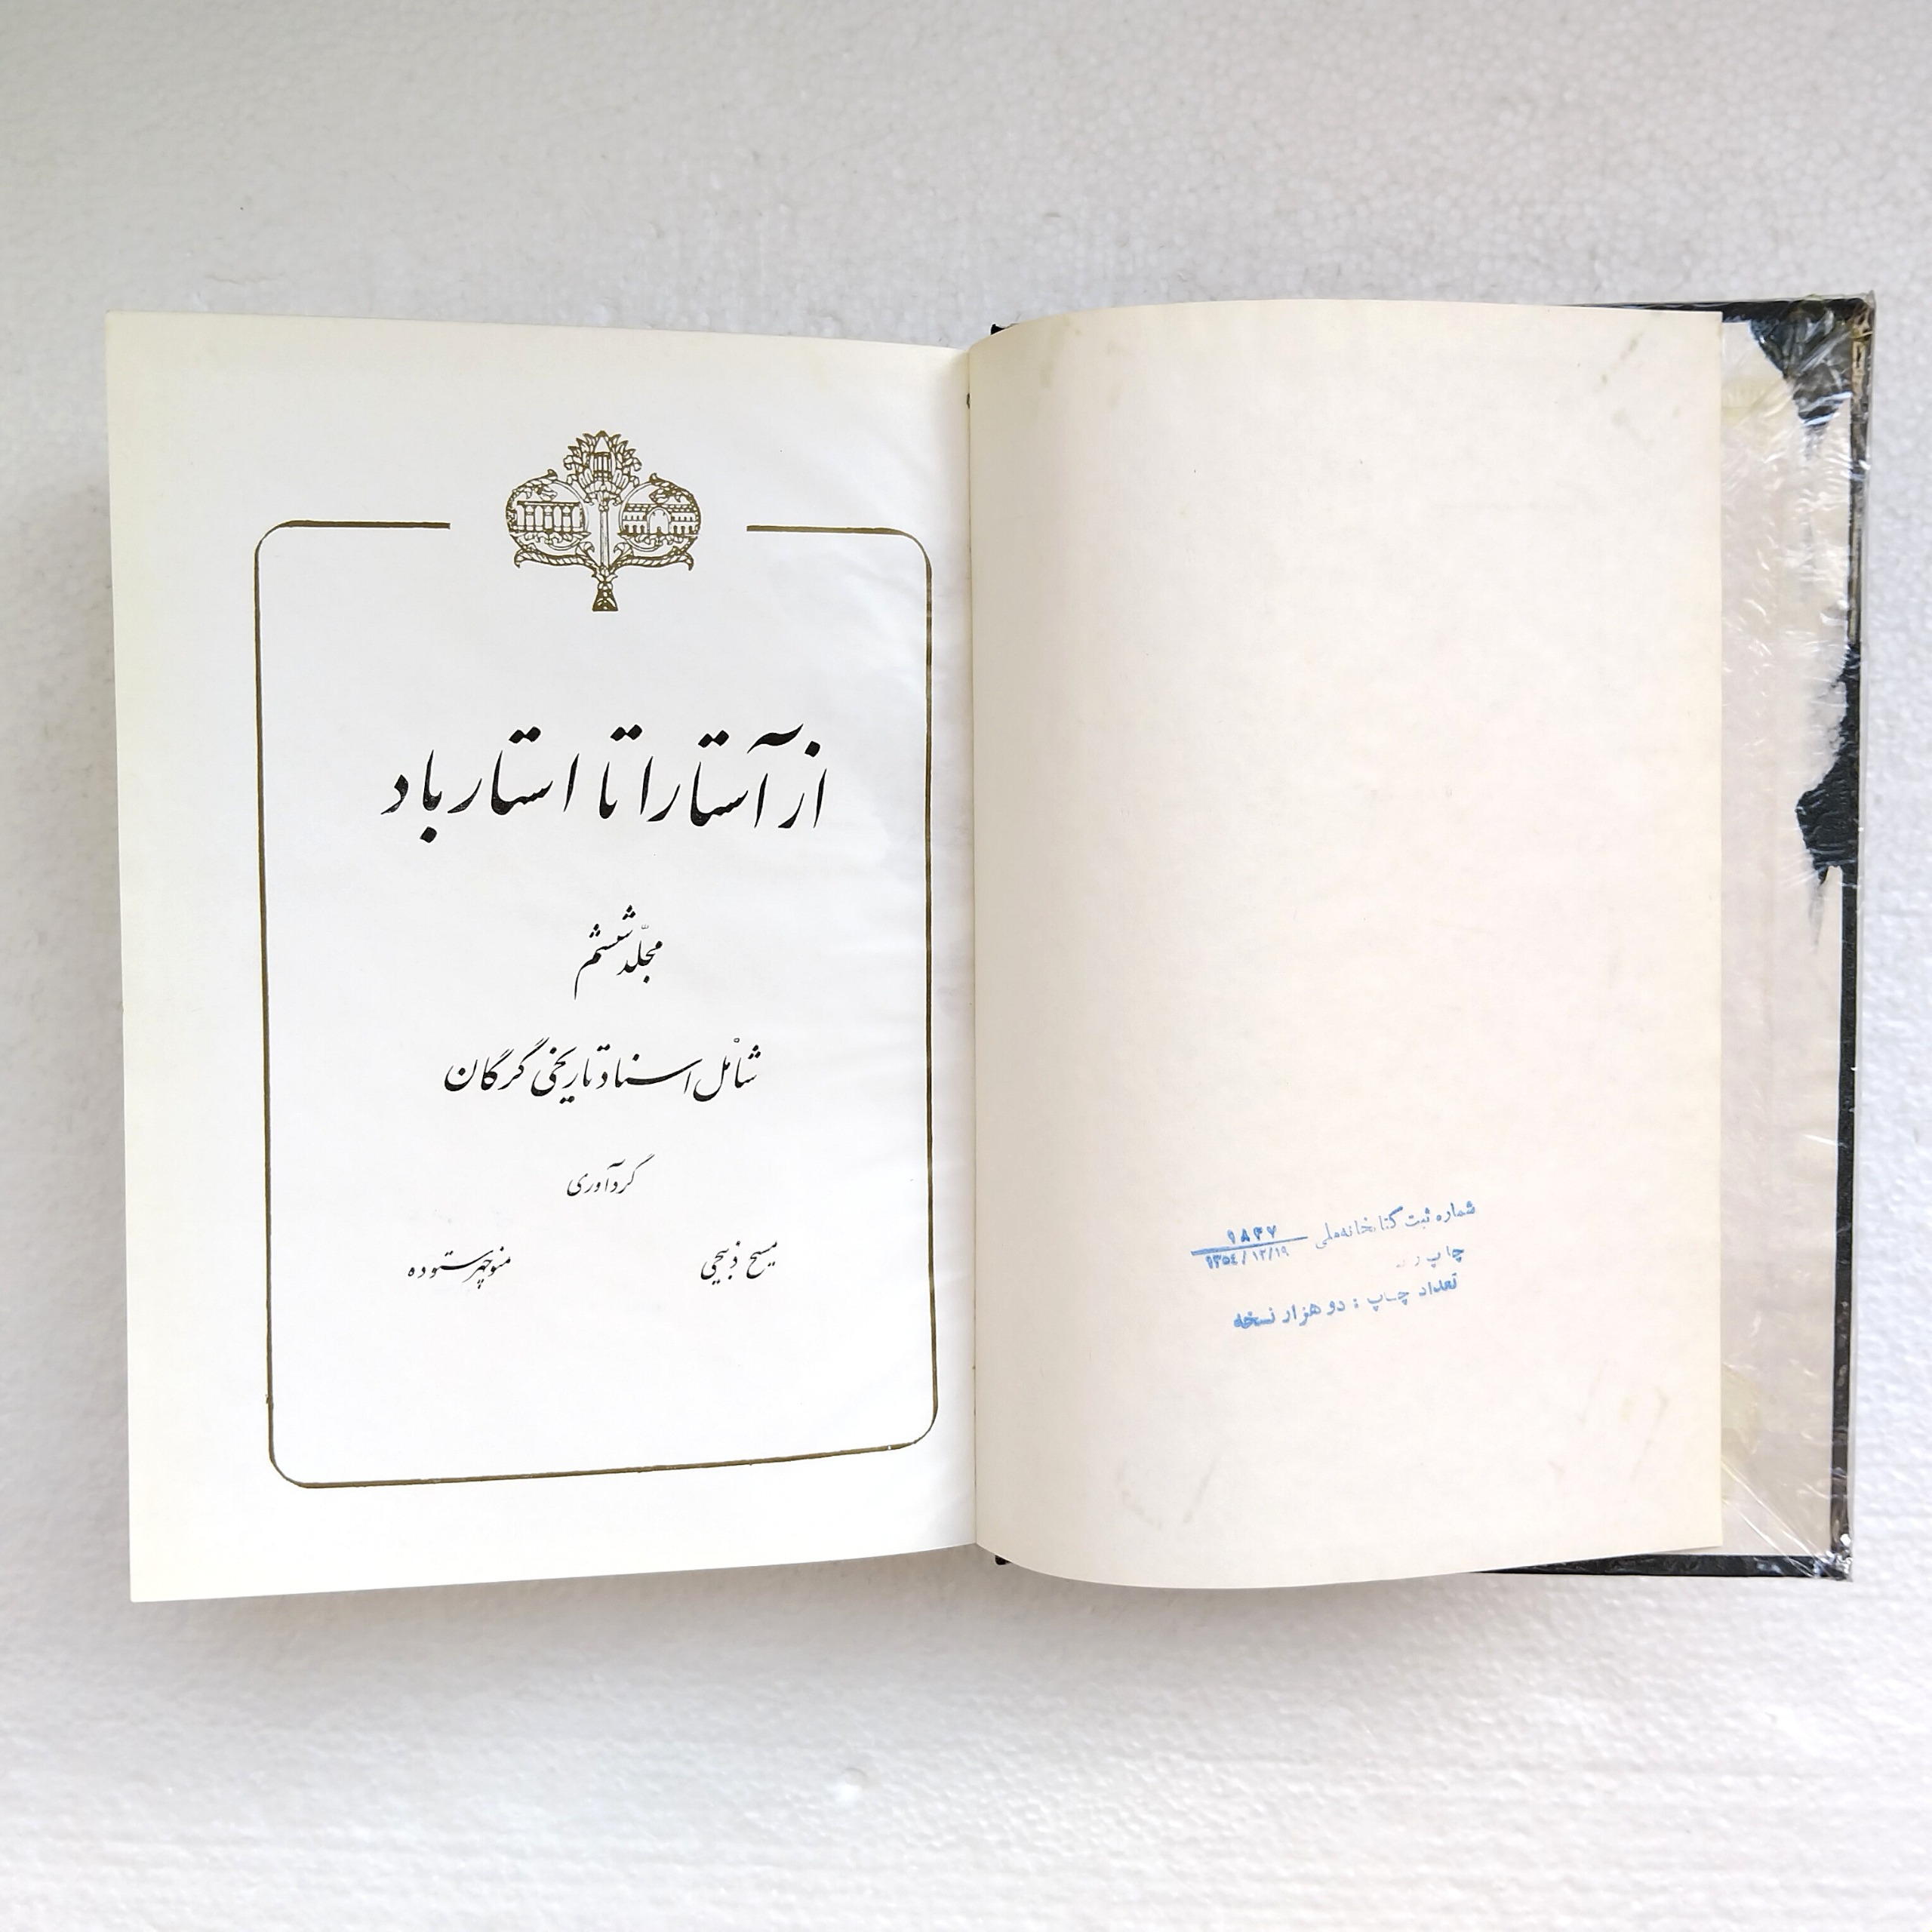 شماره ثبت کتابخانه ملی ۱۸۴۷
۱۳۵٤/۱۲/۱۹
چاپ
تعداد چاپ : دو هزار نسخه
از آستارا تا استارباد
مجلّد ششم
شامل اسناد تاریخی گرگان
گردآوری
مسیح ذبیحی منوچهر ستوده